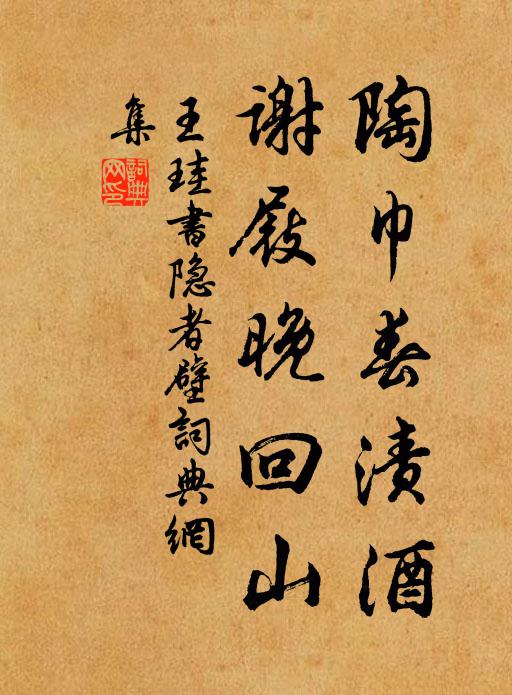 陶巾春漬酒
謝屐晚回山
王珪書隐者壁詞典網
集
詞典
网印